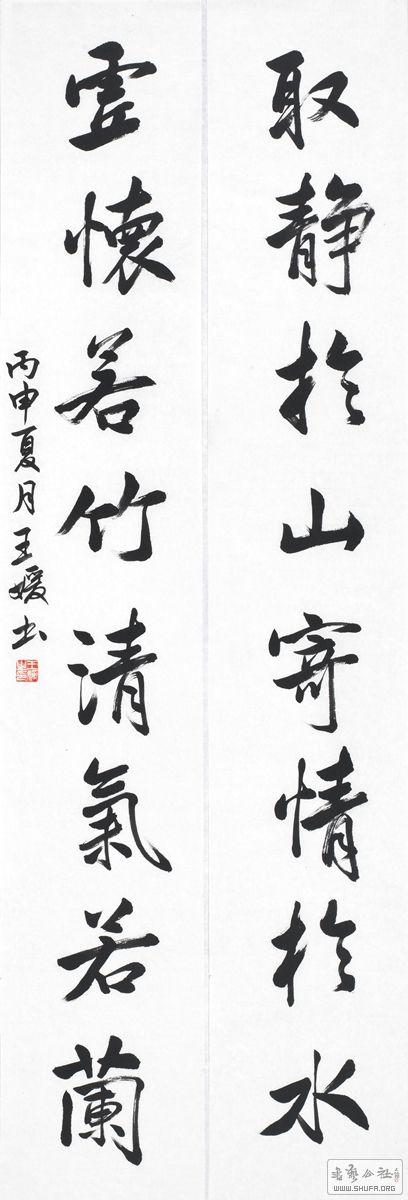 取静於山寄情於水
虚懷若竹清氣若蘭
丙申夏月王媛书
书艺公社
WWW.SHUFA.ORG